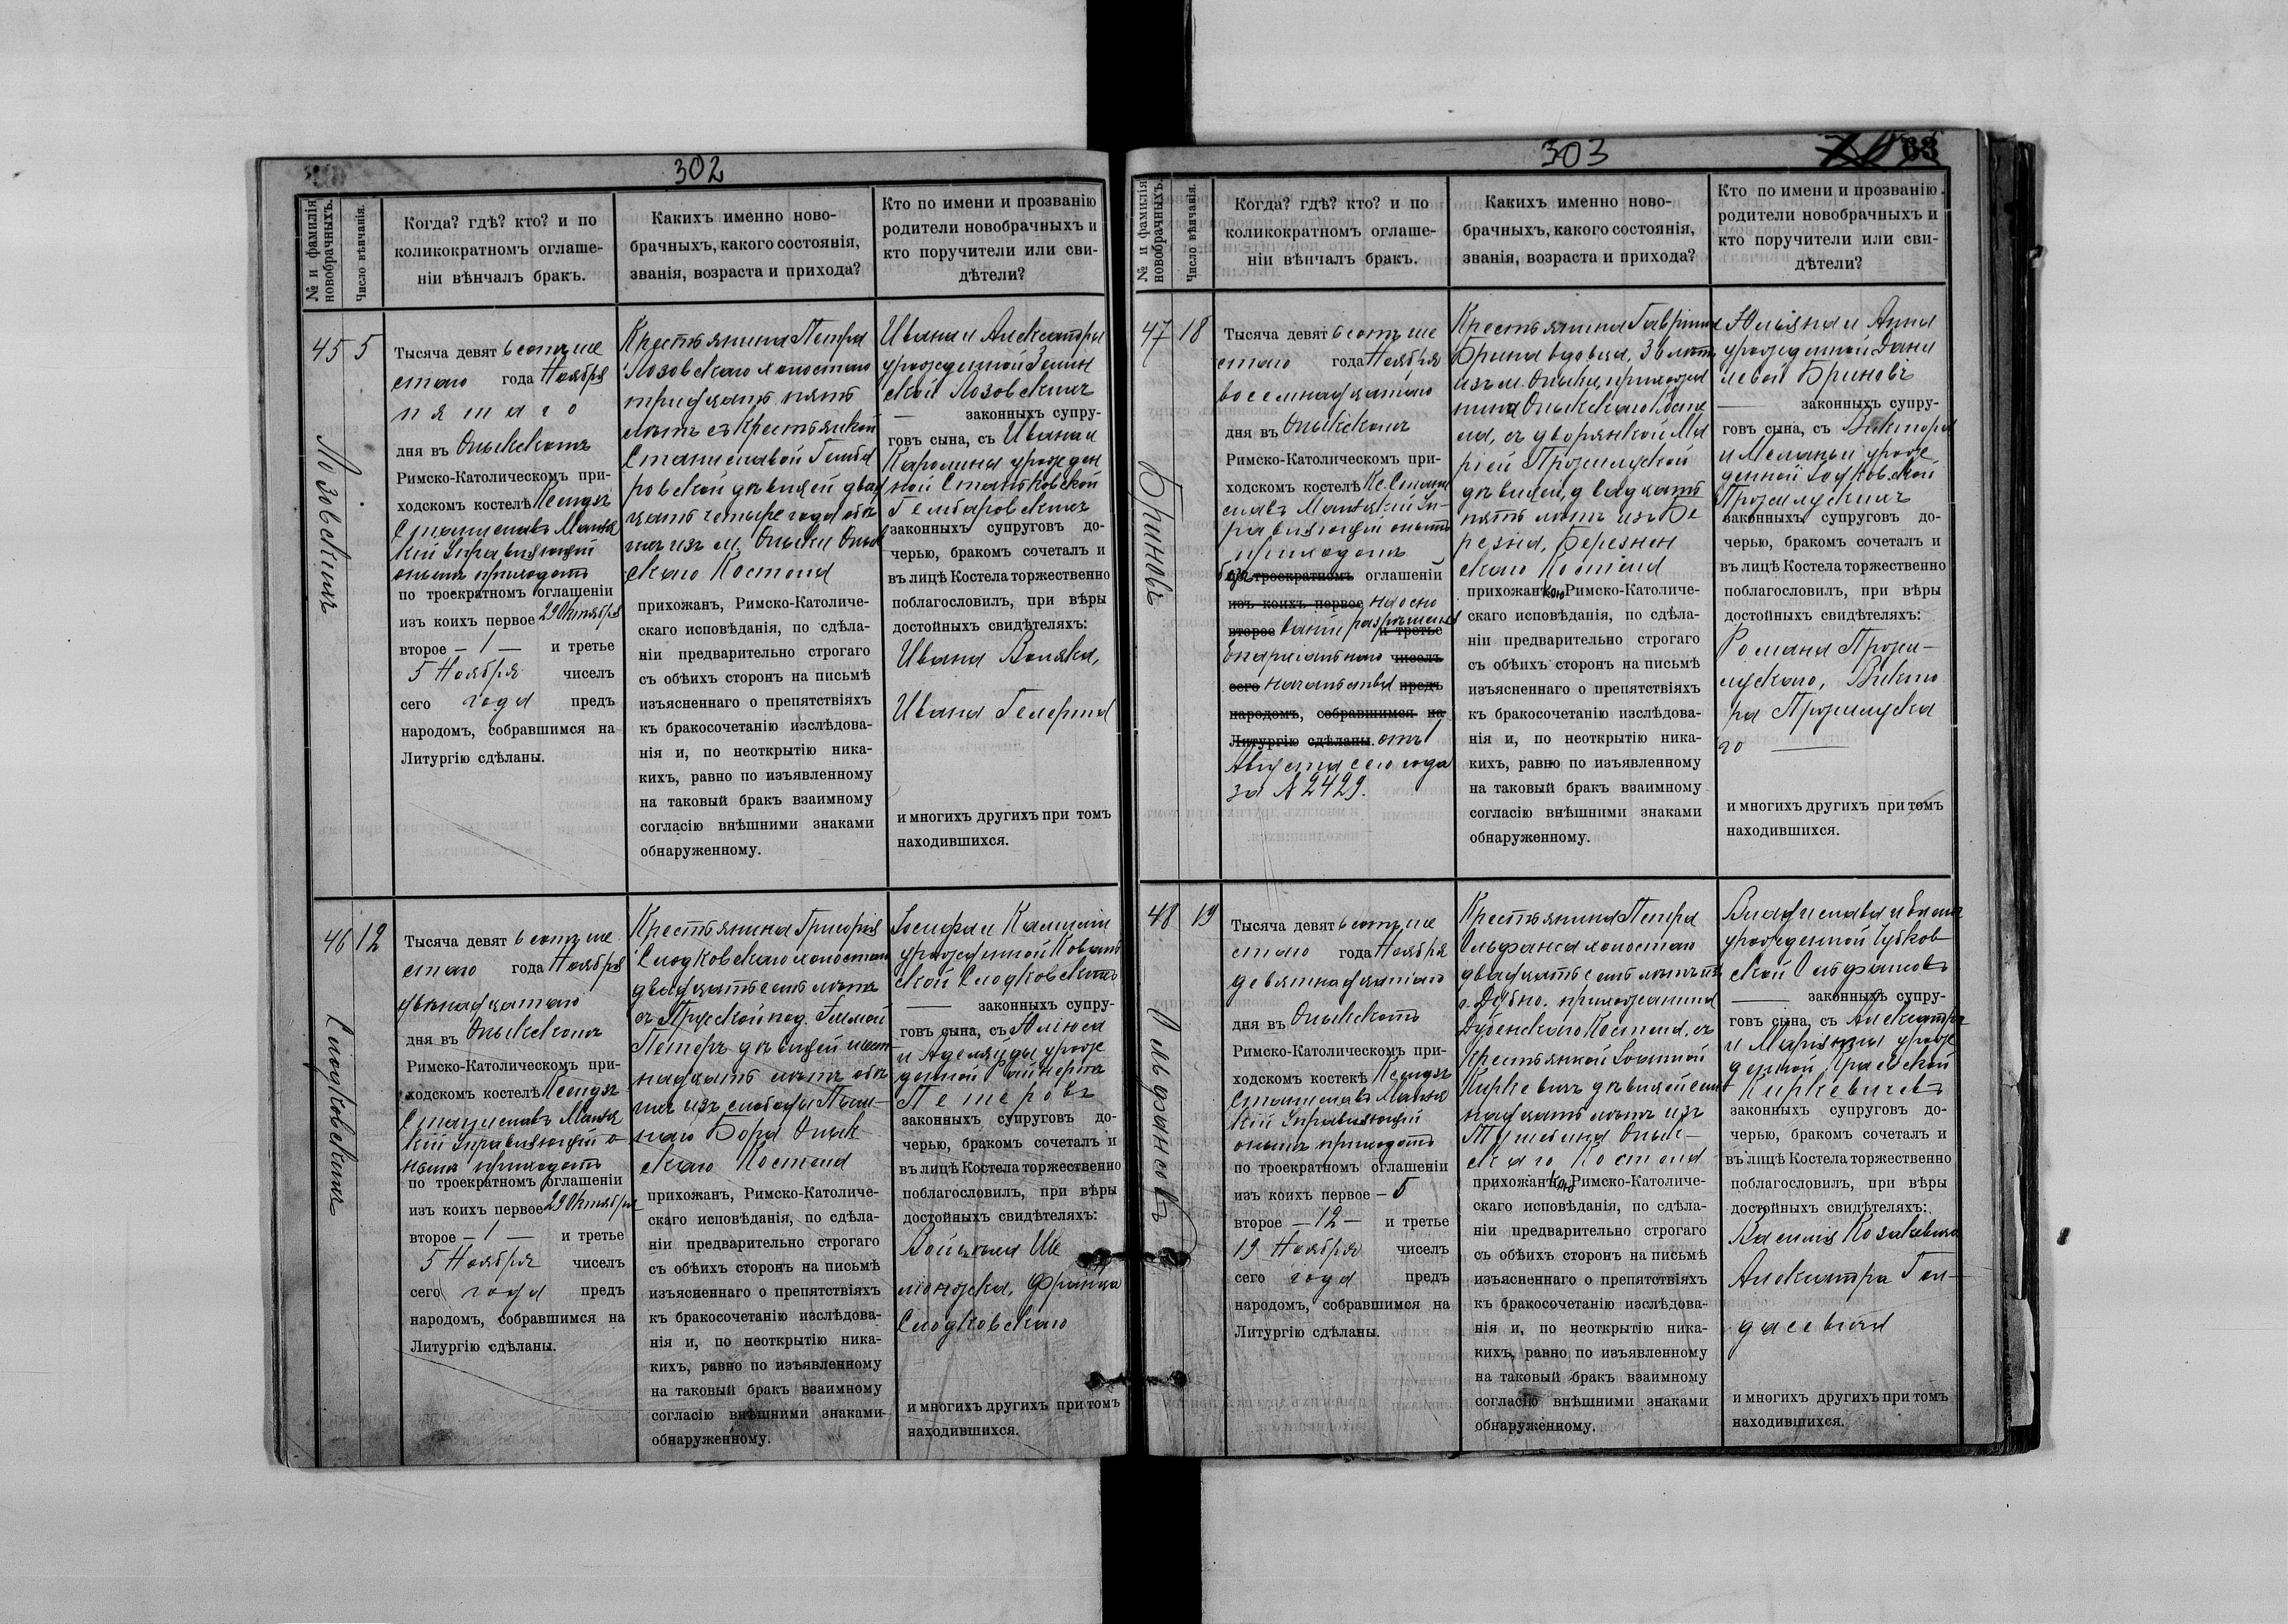 302
№ и фамилія
новобрачныхъ.
Число вѣнчанія.
Когда? гдѣ? кто? и по
коликократномъ оглаше-
ніи вѣнчалъ бракъ.
Какихъ именно ново-
брачныхъ, какого состоянія,
званія, возраста и прихода?
Кто по имени и прозванію
родители новобрачныхъ и
кто поручители или сви-
дѣтели?
45
Лозовскихъ
5
Тысяча девятьсотъ ше
стаго года Ноября
пятаго
дня въ Олыкскомъ
Римско-Католическомъ при-
ходскомъ костелѣ Ксендзъ
Станиславъ
кій Управляющій
онымъ приходомъ
по троекратномъ оглашеніи
изъ коихъ первое 29 Октября
второе — 1 — и третье
5 Ноября чиселъ
сего года предъ
народомъ, собравшимся на
Литургію сдѣланы.
Крестьянина Петра
Лозовскаго холостаго
тридцать пять
лѣтъ съ Крестьянкой
Станиславой Гемба
ровской дѣвицей двад
цать четыре года обо
ихъ изъ м. Олыки Олык
скаго Костела
прихожанъ, Римско-Католиче-
скаго исповѣданія, по сдѣла-
ніи предварительно строгаго
съ обѣихъ сторонъ на письмѣ
изъясненнаго о препятствіяхъ
къ бракосочетанію изслѣдова-
нія и, по неоткрытію ника-
кихъ, равно по изъявленному
на таковый бракъ взаимному
согласію внѣшними знаками
обнаруженному.
Ивана и Александры
урожденной
ской Лозовскихъ
— законныхъ супру-
говъ сына, съ Ивана и
Каролины урожден
ной Станковской
Гембаровскихъ
законныхъ супруговъ до-
черью, бракомъ сочеталъ и
въ лицѣ Костела торжественно
поблагословилъ, при вѣры
достойныхъ свидѣтеляхъ:
Ивана
Ивана
и многихъ другихъ при томъ
находившихся.
46
Слодковскихъ
12
Тысяча девятьсотъ ше
стаго года Ноября
двѣнадцатаго
дня въ Олыкскомъ
Римско-Католическомъ при-
ходскомъ костелѣ Ксендзъ
Станиславъ
кій Управляющій о-
нымъ приходомъ
по троекратномъ оглашеніи
изъ коихъ первое 29 Октября
второе — 1 — и третье
5 Ноября чиселъ
сего года предъ
народомъ, собравшимся на
Литургію сдѣланы.
Крестьянина Григорія
Слодковскаго холостаго
двадцать семь лѣтъ
съ Прусской под.
Петеръ дѣвицей шест
надцать лѣтъ обо
ихъ изъ слободы
наго Бора Олык
скаго Костела
прихожанъ, Римско-Католиче-
скаго исповѣданія, по сдѣла-
ніи предварительно строгаго
съ обѣихъ сторонъ на письмѣ
изъясненнаго о препятствіяхъ
къ бракосочетанію изслѣдова-
нія и, по неоткрытію ника-
кихъ, равно по изъявленному
на таковый бракъ взаимному
согласію внѣшними знаками
обнаруженному.
Іосифа и Камиліи
урожденной Коваль
ской Слодковскихъ
— законныхъ супру-
говъ сына, съ Юліюса
и Аделяиды урож
денной
Петеровъ
законныхъ супруговъ до-
черью, бракомъ сочеталъ и
въ лицѣ Костела торжественно
поблагословилъ, при вѣры
достойныхъ свидѣтеляхъ:
Франца
Слодковскаго
и многихъ другихъ при томъ
находившихся.
303
63
№ и фамилія
новобрачныхъ.
Число вѣнчанія.
Когда? гдѣ? кто? и по
коликократномъ оглаше-
ніи вѣнчалъ бракъ.
Какихъ именно ново-
брачныхъ, какого состоянія,
званія, возраста и прихода?
Кто по имени и прозванію
родители новобрачныхъ и
кто поручители или сви-
дѣтели?
47
Бриновъ
18
Тысяча девятьсотъ ше
стаго года Ноября
восемнадцатаго
дня въ Олыкскомъ
Римско-Католическомъ при-
ходскомъ костелѣ Кс. Стани
славъ Уп-
равляющій онымъ
приходомъ
безъ троекратномъ оглашеній
изъ коихъ первое на осно
второе ваніи разрѣшенія и третье
Епархіальнаго чиселъ
сего начальства предъ
народомъ, собравшимся на
Литургію сдѣланы. отъ 1
Августа сего года
за № 2429.
Крестьянина Гавріила
Брина вдовца, 36 лѣтъ
изъ м. Олыки, прихожа
нина Олыкскаго Косте
ла, съ дворянкой Ма
ріей Прожилуской
дѣвицей, двадцать
пять лѣтъ изъ Бе
резна, Березнен
скаго Костела
прихожанкою Римско-Католиче-
скаго исповѣданія, по сдѣла-
ніи предварительно строгаго
съ обѣихъ сторонъ на письмѣ
изъясненнаго о препятствіяхъ
къ бракосочетанію изслѣдова-
нія и, по неоткрытію ника-
кихъ, равно по изъявленному
на таковый бракъ взаимному
согласію внѣшними знаками
обнаруженному.
Юльяна и Анны
урожденной Дани
левой Бриновъ
— законныхъ супру-
говъ сына, съ Виктора
и Меланьи урож
денной
Прожилускихъ
законныхъ супруговъ до-
черью, бракомъ сочеталъ и
въ лицѣ Костела торжественно
поблагословилъ, при вѣры
достойныхъ свидѣтеляхъ:
Романа Прожи-
лускаго, Викто
ра Прожилуска
го —
и многихъ другихъ при томъ
находившихся.
48
Ольфановъ
19
Тысяча девятьсотъ ше
стаго года Ноября
девятнадцатаго
дня въ Олыкскомъ
Римско-Католическомъ при-
ходскомъ костекѣ Ксендзъ
Станиславъ
кій Управляющій
онымъ приходомъ
по троекратномъ оглашеніи
изъ коихъ первое — 5
второе — 12 — и третье
19 Ноября чиселъ
сего года предъ
народомъ, собравшимся на
Литургію сдѣланы.
Крестьянина Петра
Ольфана холостаго
двадцать семь лѣтъ изъ
г. Дубно. прихожанина
Дубенскаго Костела, съ
Крестьянкой Іоанной
Киркевичъ дѣвицей сем
надцать лѣтъ изъ
Олык-
скаго Костела
прихожанкою Римско-Католиче-
скаго исповѣданія, по сдѣла-
ніи предварительно строгаго
съ обѣихъ сторонъ на письмѣ
изъясненнаго о препятствіяхъ
къ бракосочетанію изслѣдова-
нія и, по неоткрытію ника-
кихъ, равно по изъявленному
на таковый бракъ взаимному
согласію внѣшними знаками
обнаруженному.
Владислава и
урожденной Чубков
ской Ольфановъ
— законныхъ супру-
говъ сына, съ Александра
и Маріанны урож
денной Краевской
Киркевичевъ
законныхъ супруговъ до-
черью, бракомъ сочеталъ и
въ лицѣ Костела торжественно
поблагословилъ, при вѣры
достойныхъ свидѣтеляхъ:
Василія Козакевича
Александра
и многихъ другихъ при томъ
находившихся.